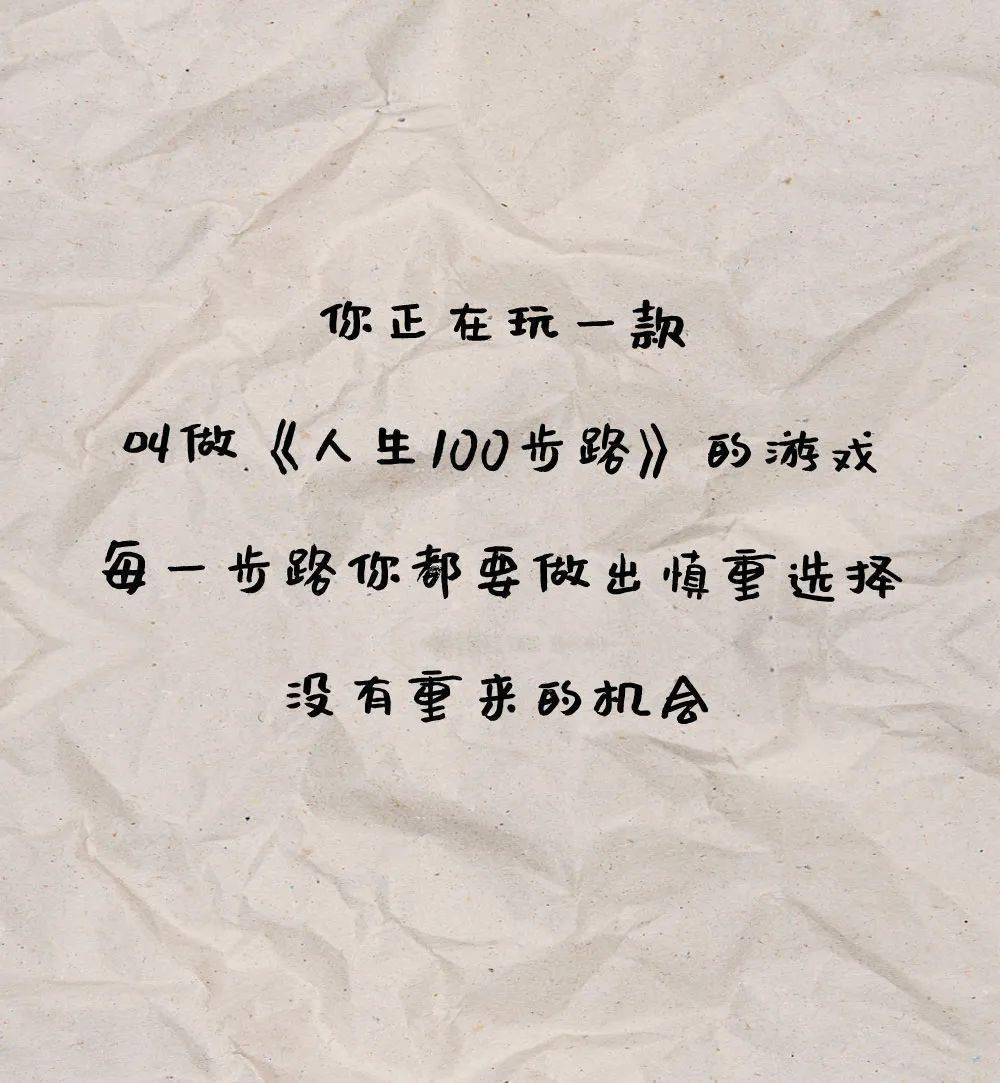 你正在玩一款
叫做《人生100步路》的游戏
每一步路你都要做出慎重选择
没有重来的机会